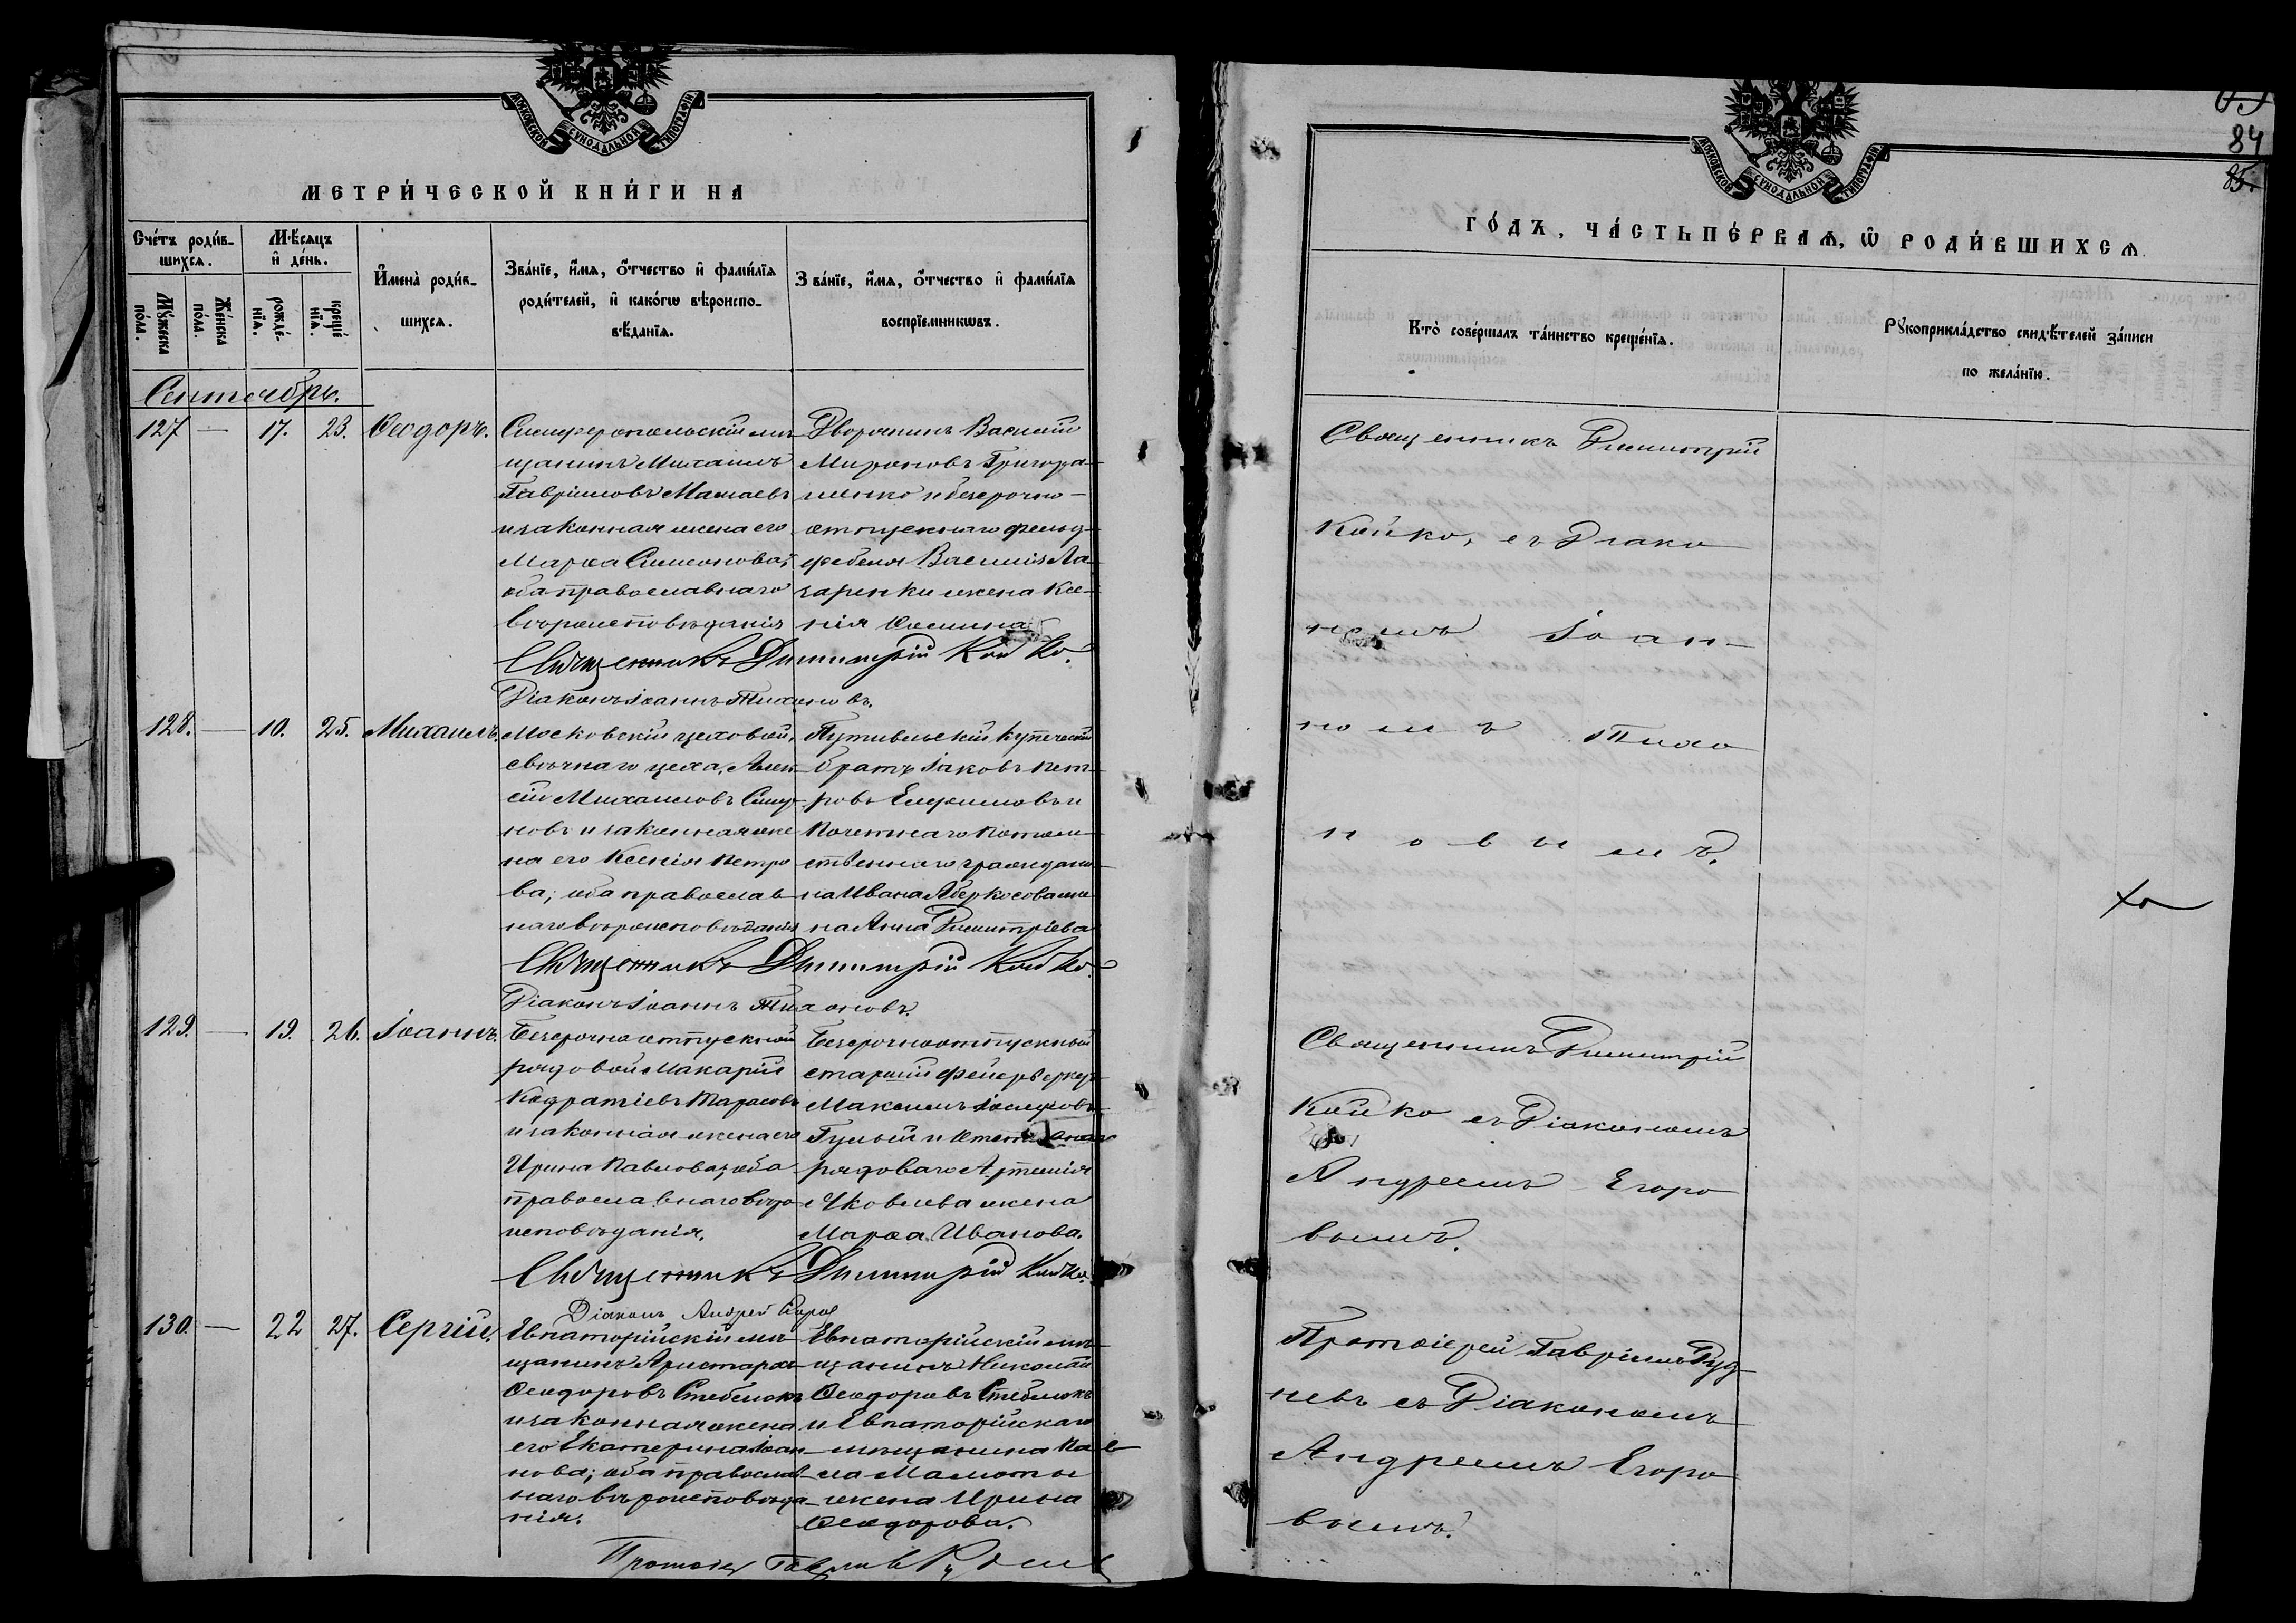 МОСКОВСКОЙ СѴНОДАЛЬНОЙ ТИПОГРАФІИ
МЕТРИ́ЧЕСКОЙ КНИ́ГИ НА
Сче́тъ роди́в-
шихсѧ.
Мѣ́сѧцъ
и҆ де́нь.
И҆мена̀ роди́в-
шихсѧ.
Зва́нїе, и҆́мѧ, ѻ҆́тчество и҆ фами́лїѧ
роди́телей, и҆ како́гѡ вѣроиспо-
вѣ́данїѧ.
Зва́нїе, и҆́мѧ, ѻ҆́тчество и҆ фами́лїѧ
воспрїе́мникѡвъ.
Мꙋ́жеска
по́ла.
Же́нска
по́ла.
рожде́-
нїѧ.
креще́
нїѧ.
Сентябрь.
127 — 17. 23. Ѳеодоръ.
Симферопольскій мѣ-
щанинъ Михаилъ
Гавріиловъ Мамаевъ
и законная жена его
Марѳа Симонова;
оба православнаго
вѣроисповѣданія
Дворянинъ Василій
Мироновъ Григора-
шенко и безсрочно-
отпускнаго фельд-
фебеля Василія Ла-
заренки жена Ксе-
нія Ѳомина
Священникъ Димитрій Койко.
Діаконъ Іоаннъ Тихановъ.
128. — 10. 25. Михаилъ.
Московскій цеховой,
свѣчнаго цеха, Алек-
сій Михаиловъ
новъ и законная же
на его Ксенія Петро
ва; оба православ
наго вѣроисповѣданія
Путивльскій купеческій
братъ Іаковъ Пет-
ровъ Екимовъ и
Почетнаго Потом-
ственнаго граждани-
на Ивана Аберкосова же
на Анна Димитріева
Священникъ Димитрій Койко.
Діаконъ Іоаннъ Тихановъ.
129. — 19. 26. Іоаннъ.
Безсрочноотпускной
рядовой Макарій
Кодратіевъ Тарасовъ
и законная жена его
Ирина Павлова; оба
православнаго вѣро
исповѣданія.
Безсрочноотпускный
старшій фейерверкеръ
Максимъ Іосифовъ
Гулый и
рядоваго Артемія
Яковлева жена
Марѳа Иванова.
Священникъ Димитрій Койко.
Діаконъ Андрей Егоров
130. — 22 27. Сергій.
Евпаторійскій мѣ-
щанинъ Аристархъ
Ѳеодоровъ Стеблюкъ
и законная жена
его Екатерина Іоан-
нова; оба православ
наго вѣроисповѣда
нія.
Евпаторійскій мѣ-
щанинъ Николай
Ѳеодоровъ Стеблюкъ
и Евпаторійскаго
мѣщанина Пав
ла Малюты
жена Ирина
Ѳеодорова.
Протоіер Гавріилъ Руднев
84
85.
МОСКОВСКОЙ СѴНОДАЛЬНОЙ ТИПОГРАФІИ
ГО́ДЪ, ЧА́СТЬ ПЕ́РВАѦ, Ѡ҆ РОДИ́ВШИХСѦ.
Кто̀ соверша́лъ та́инство креще́нїѧ.
Рꙋкоприкла́дство свидѣ́телей за́писи
по жела́нїю.
Священникъ Димитрій
Койко, съ Діако
номъ Іоан-
номъ Тиха
новымъ.
Священникъ Димитрій
Койко съ Діакономъ
Андреемъ Егоро
вымъ.
Протоіерей Гавріилъ Руд-
невъ съ Діакономъ
Андреемъ Егоро
вымъ.